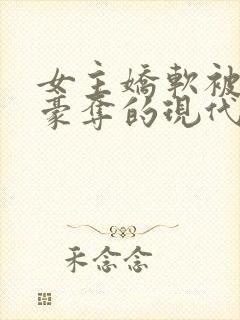 女主嬌軟被
豪奪的現代
禾念念